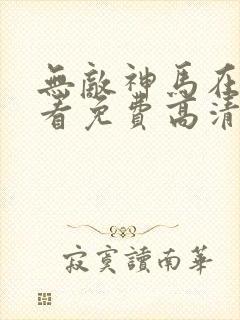 無敵神馬在
看免費高清
寂寞讀南華